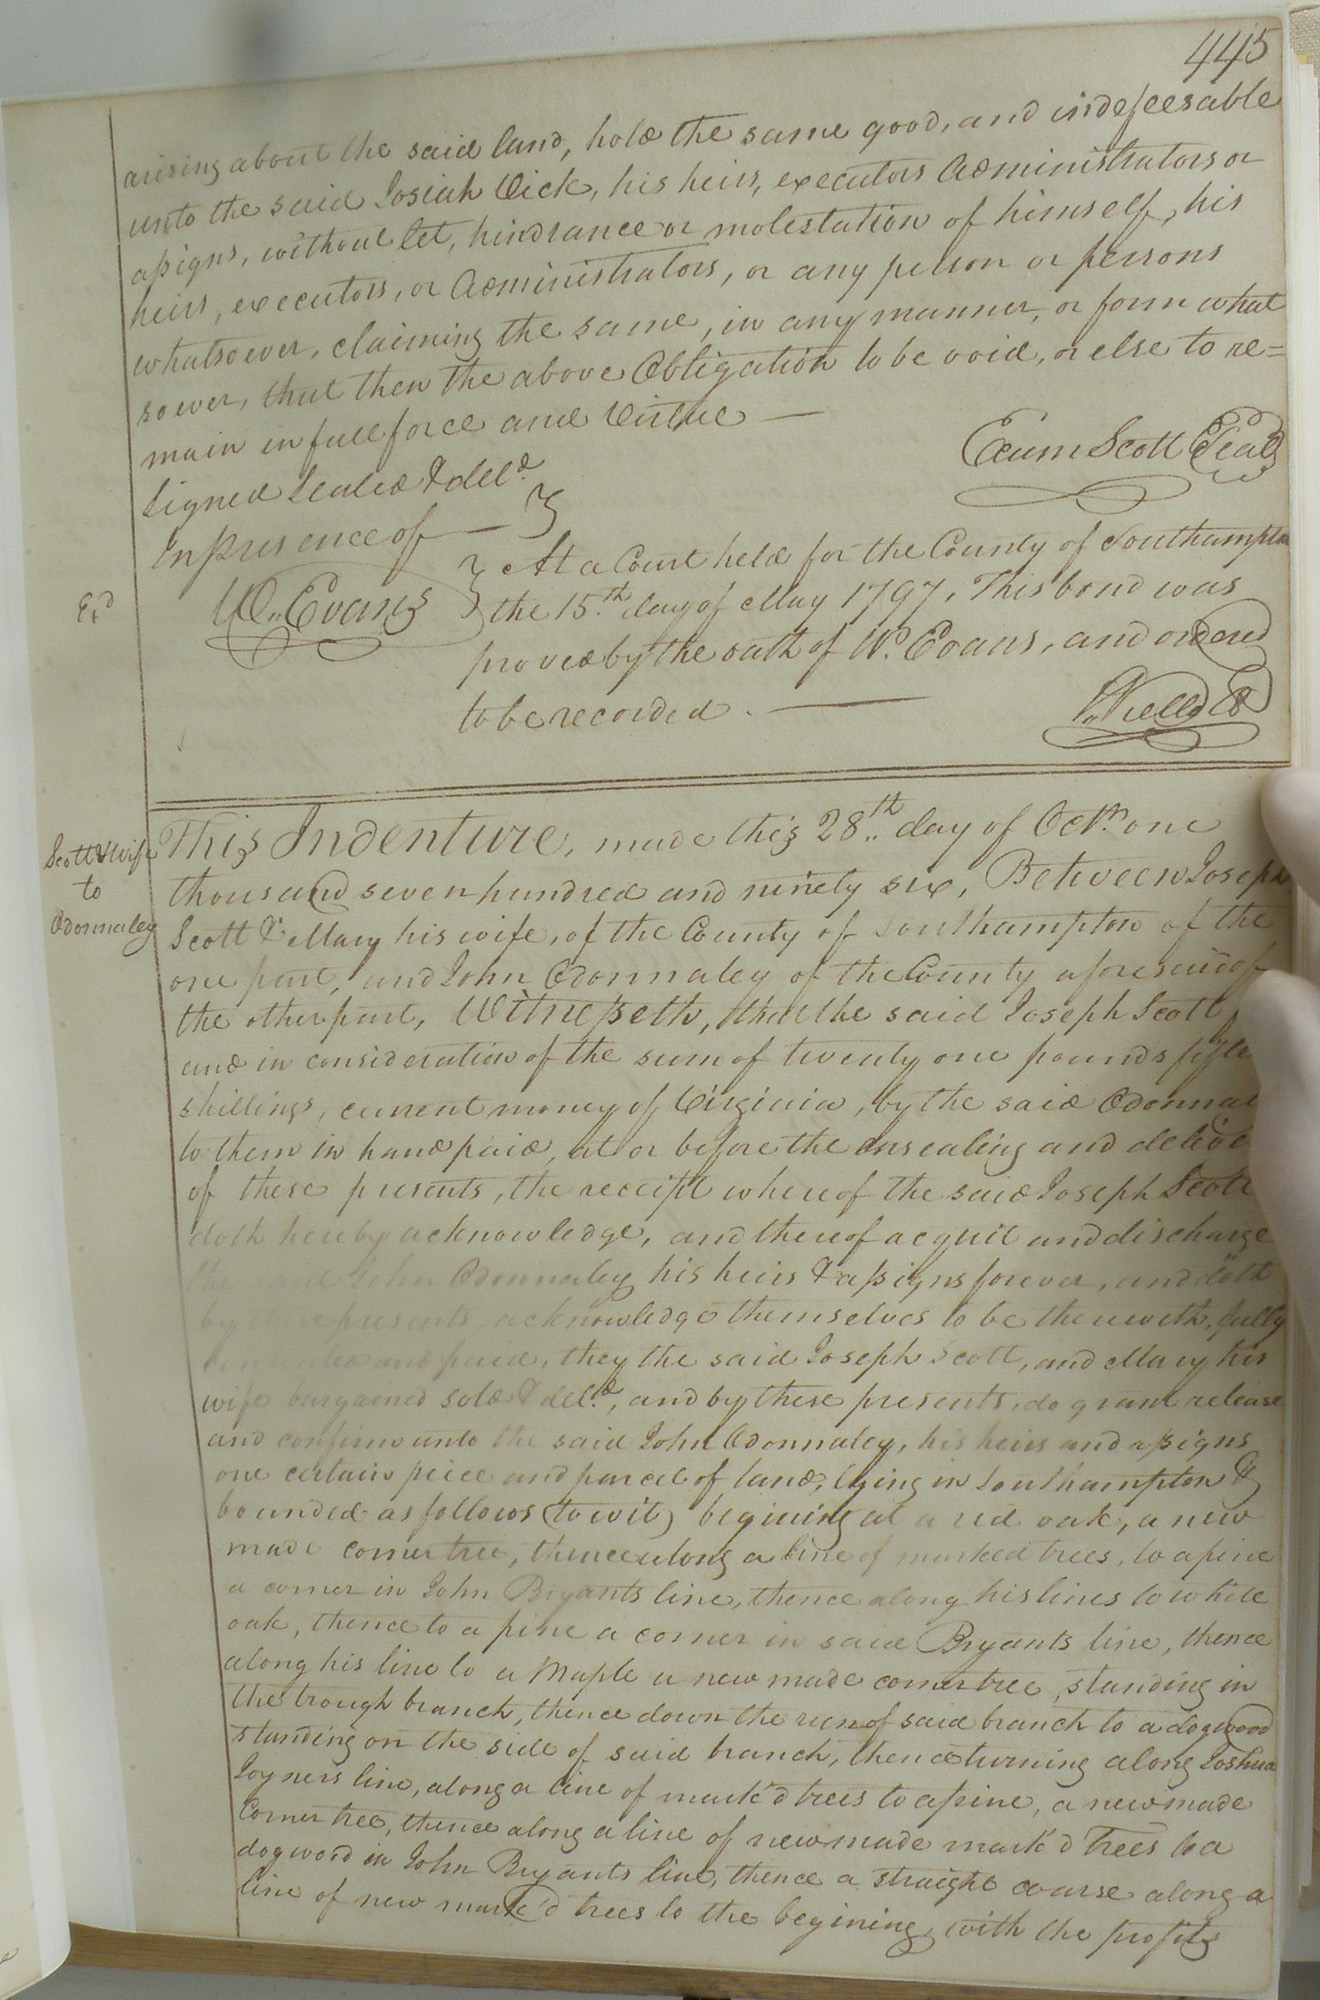 445
arising about the said land, hold the same good, and indefeesable
unto the said Josiah Vick, his heirs, executors Administrators or
assigns, without let, hindrance or molestation of himself, his
heirs, executors, or Administrators, or any person or persons
whatsoever, claiming the same, in any manner, or form what
soever, that then the above Obligation to be void, or else to re=
main in full force and Virtue —
Exum Scott Seal
Signed Sealed & deld.
In presence of —
Wm. Evans
Ex.d
At a Court held for the County of Southampton
the 15.th day of May 1797, This bond was
proved by the oath of Wm. Evans, and ordered
to be recorded. —
Scott & Wife
to
Odonnaley
This Indenture, made this 28.th day of Octr. one
thousand seven hundred and ninety six, Between Joseph
Scott & Mary his wife, of the County of Southampton of the
one part, and John Odonnaley of the County aforesaid of
the other part, Witnesseth, that the said Joseph Scott
and in consideration of the sum of twenty one pounds fifte
shillings, current money of Virginia, by the said Odonnal
to them in hand paid, at or before the ensealing and delive
of these presents, the receipt whereof the said Joseph Scott
doth hereby acknowledge, and thereof acquit and discharge
the said John Odonnaley his heirs & assigns forever, and doth
by these presents, acknowledge themselves to be therewith, fully
contented and paid, they the said Joseph Scott, and Mary his
wife bargained sold & deld., and by these presents, do grant release
and confirm unto the said John Odonnaley, his heirs and assigns
one certain piece and parcel of land, lying in Southampton &
bounded as follows (to wit) begining at a red oak, a new
made corner tree, thence along a line of marked trees, to a pine
a corner in John Bryants line, thence along his lines to white
oak, thence to a pine a corner in said Bryants line, thence
along his line to a Maple a new made corner tree, standing in
the trough branch, thence down the run of said branch to a dogwood
standing on the side of said branch, thence turning along Joshua
Joyners line, along a line of mark'd trees to a pine, a new made
Corner tree, thence along a line of new made mark'd Trees to a
dogwood in John Bryants line, thence a straight course along a
line of new mark'd trees to the begining with the profits